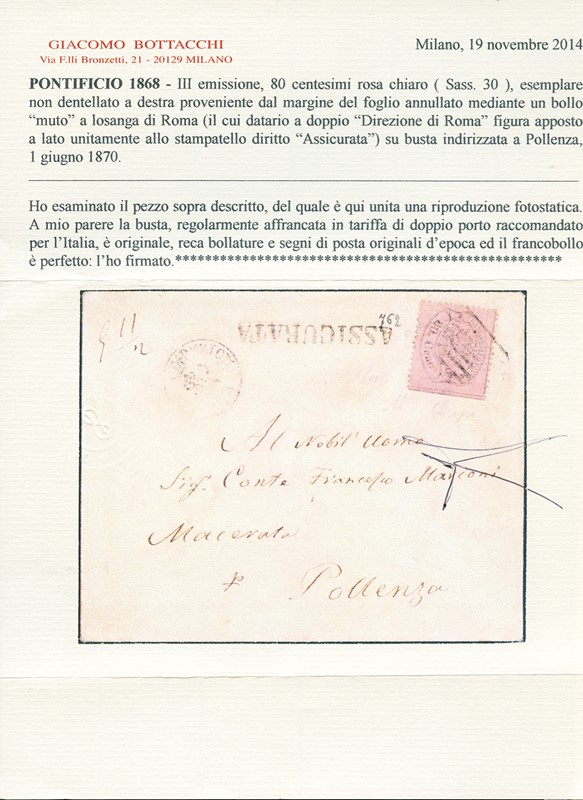 GIACOMO BOTTACCHI
Via F.lli Bronzetti, 21 - 20129 MILANO
Milano, 19 novembre 2014
PONTIFICIO 1868 - III emissione, 80 centesimi rosa chiaro ( Sass. 30 ), esemplare
non dentellato a destra proveniente dal margine del foglio annullato mediante un bollo
“muto” a losanga di Roma (il cui datario a doppio “Direzione di Roma” figura apposto
a lato unitamente allo stampatello diritto “Assicurata”) su busta indirizzata a Pollenza,
1 giugno 1870.
Ho esaminato il pezzo sopra descritto, del quale è qui unita una riproduzione fotostatica.
A mio parere la busta, regolarmente affrancata in tariffa di doppio porto raccomandato
per l’Italia, è originale, reca bollature e segni di posta originali d’epoca ed il francobollo
è perfetto: l’ho firmato.**************************************************
762
ASSICURATA
Al Nobil' Uomo
Sig. Conte Francesco Marconi
Macerata
Pollenza